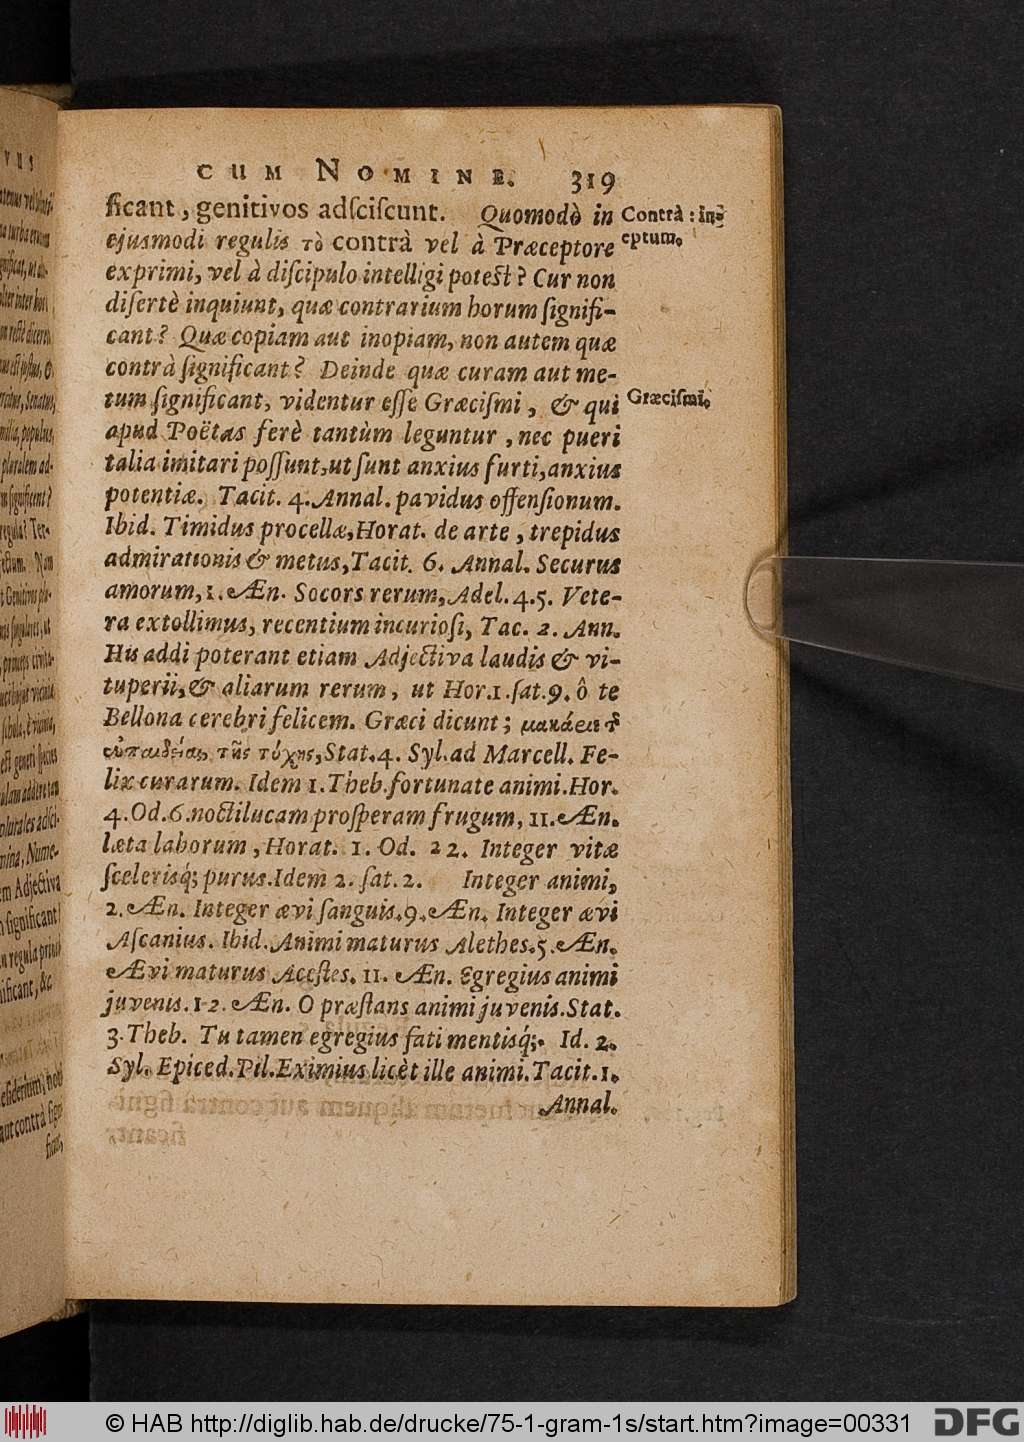 CUM NOMINE. 319
ficant, genitivos adſciſcunt. Quomodò in
ejusmodi regulis τὸ contrà vel à Præceptore
exprimi, vel à diſcipulo intelligi poteſt? Cur non
diſertè inquiunt, quæ contrarium horum ſignifi-
cant? Quæ copiam aut inopiam, non autem quæ
contrà ſignificant? Deinde quæ curam aut me-
tum ſignificant, videntur eſſe Græciſmi, & qui
apud Poëtas ferè tantùm leguntur, nec pueri
talia imitari poſſunt, ut ſunt anxius furti, anxius
potentiæ. Tacit. 4. Annal. pavidus offenſionum.
Ibid. Timidus procellæ, Horat. de arte, trepidus
admirationis & metus, Tacit. 6. Annal. Securus
amorum, 1. Æn. Socors rerum, Adel. 4. 5. Vete-
ra extollimus, recentium incurioſi, Tac. 2. Ann.
His addi poterant etiam Adjectiva laudis & vi-
tuperii, & aliarum rerum, ut Hor. 1. ſat. 9. ô te
Bellona cerebri felicem. Græci dicunt;
τῆς τύχης, Stat. 4. Syl. ad Marcell. Fe-
lix curarum. Idem 1. Theb. fortunate animi. Hor.
4. Od. 6. noctilucam proſperam frugum, 11. Æn.
læta laborum, Horat. 1. Od. 22. Integer vitæ
ſcelerisq́; purus. Idem 2. ſat. 2. Integer animi,
2. Æn. Integer ævi ſanguis. 9. Æn. Integer ævi
Aſcanius. Ibid. Animi maturus Alethes. 5. Æn.
Ævi maturus Aceſtes. 11. Æn. Egregius animi
juvenis. 12. Æn. O præſtans animi juvenis. Stat.
3. Theb. Tu tamen egregius fati mentisq́;. Id. 2.
Syl. Epiced. Pil. Eximius licèt ille animi. Tacit. 1.
Annal.
Contrà: in-
eptum.
Græciſmi.
© HAB http://diglib.hab.de/drucke/75-1-gram-1s/start.htm?image=00331
DFG